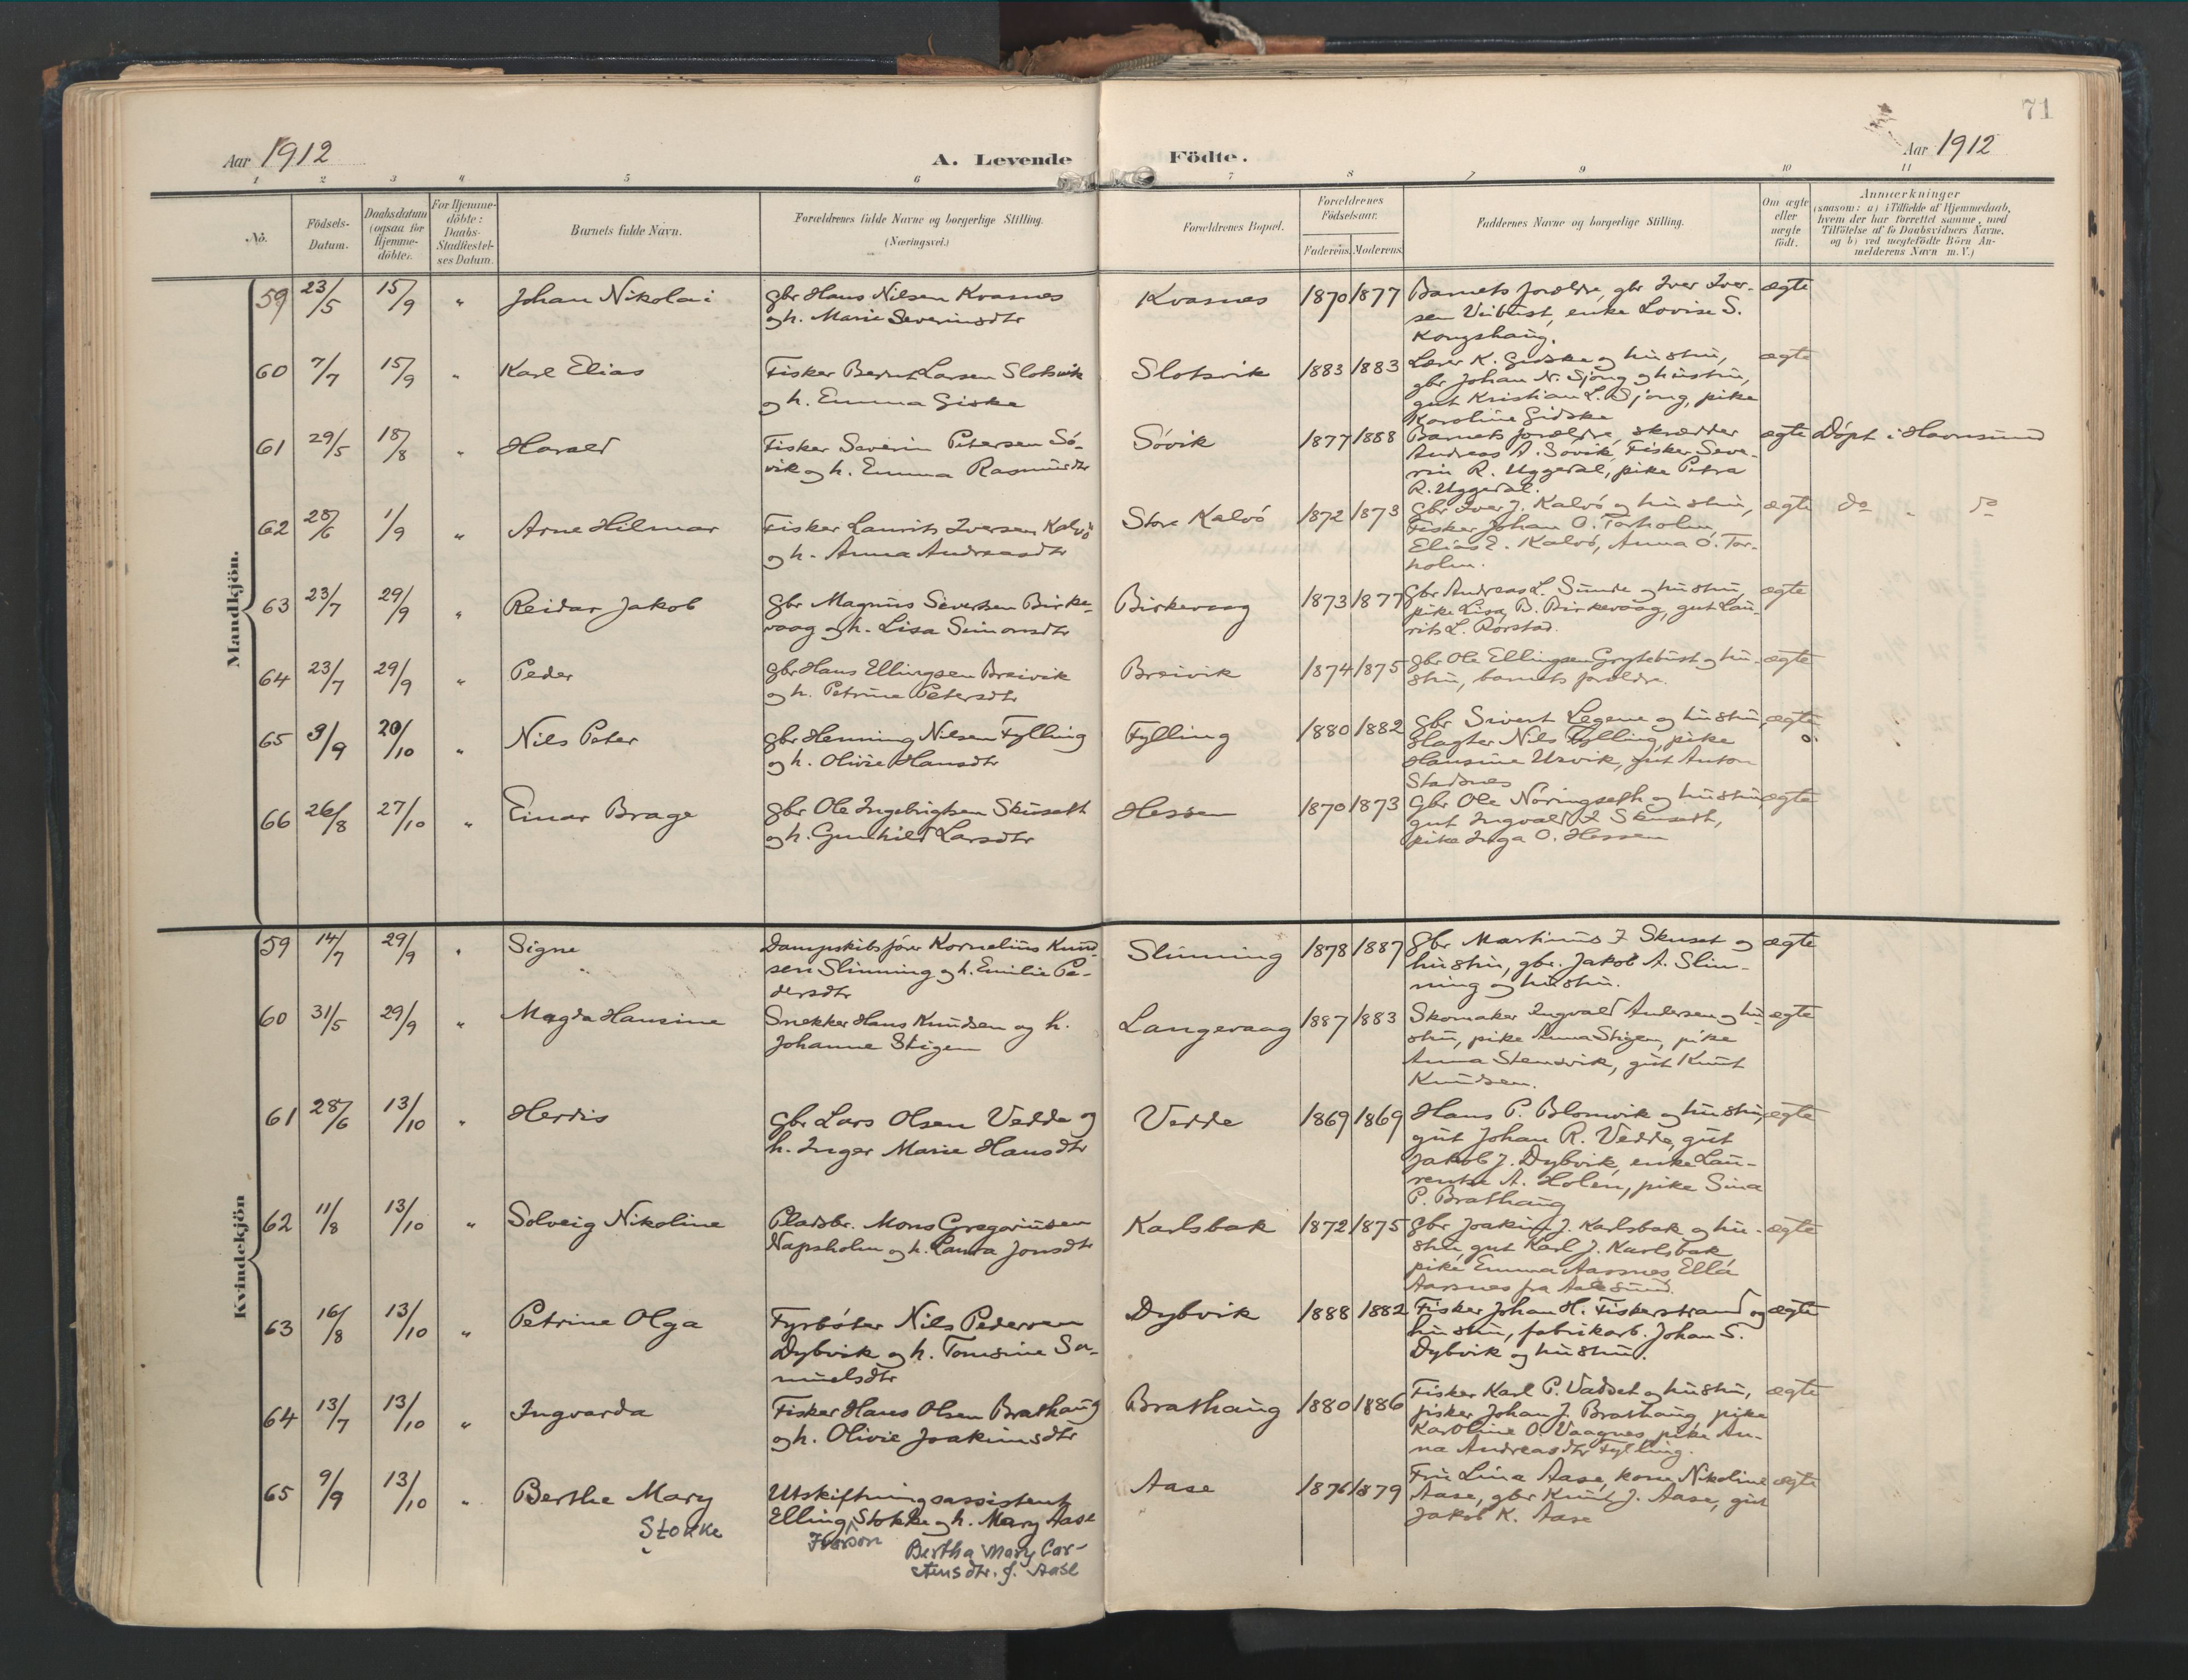 71
Aar 1912
A. Levende Födte.
Aar 1912
1 2 3 4 5 6 7 8 9 10 11
No.
Födsels-
Datum.
Daabsdatum
(ogsaa for
Hjemme-
döbte).
For Hjemme-
döbte:
Daabs-
Stadfæstel-
ses Datum.
Barnets fulde Navn.
Forældrenes fulde Navne og borgerlige Stilling.
(Næringsvei.)
Forældrenes Bopæl.
Forældrenes
Födselsaar.
Faderens. Moderens.
Faddernes Navne og borgerlige Stilling.
Om ægte
eller
uægte
födt.
Anmærkninger
(saasom: a) i Tilfælde af Hjemmedaab,
hvem der har forrettet samme, med
Tilföielse af to Daabsvidners Navne,
og b) ved uægtefödte Börn An-
melderens Navn m. V.)
Mandkjön.
59 23/5 15/9 " Johan Nikolai
gbr Hans Nilsen Kvasnes
og h. Marie Severinsdtr
Kvasnes 1870 1877
Barnets forældre, gbr Iver Iver-
sen Veibust, enke Lovise S.
Kongshaug.
ægte
60 7/7 15/9 " Karl Elias
Fisker Bernt Larsen Slotsvik
og h. Emma Giske
Slotsvik 1883 1883
Lærer K. Gidske og hustru,
gbr Johan N. Sjong og hustru,
gut Kristian L. Sjong, pike
Karoline Gidske
ægte
61 29/5 18/8 " Harald
Fisker Severin Petersen Sö-
vik og h. Emma Rasmusdtr
Sövik 1877 1888
Barnets forældre, skrædder
Andreas A. Sövik, Fisker Seve-
rin R. Uggedal, pike Petra
R. Uggedal.
ægte Döpt i Havnsund
62 28/6 1/9 " Arne Hilmar
Fisker Laurits Iversen Kalvö
og h. Anna Andreasdtr
Store Kalvö 1872 1873
gbr Iver J. Kalvö og hustru,
Fisker Johan O. Torholm,
Elias E. Kalvö, Anna O. Tor-
holm.
ægte do " do
63 23/7 29/9 " Reidar Jakob
gbr Magnus Sivertsen Birke-
vaag og h. Lisa Simonsdtr
Birkevaag 1873 1877
gbr Andreas L. Sunde og hustru,
pike Lisa B. Birkevaag, gut Lau-
rits L. Rörstad.
ægte
64 23/7 29/9 " Peder
gbr Hans Ellingsen Breivik
og h. Petrine Petersdtr
Breivik 1874 1875
gbr Ole Ellingsen Grytebust og hu-
stru, barnets forældre.
ægte
65 9/9 20/10 " Nils Peter
gbr Henning Nilsen Fylling
og h. Olivie Hansdtr
Fylling 1880 1882
gbr Sivert Legene og hustru,
Slagter Nils Fylling, pike
Hansine Urvik, gut Anton
Stadsnes
ægte
66 26/8 27/10 " Einar Brage
gbr Ole Ingebrigtsen Skuseth
og h. Gunhild Larsdtr
Hessen 1870 1873
gbr Ole Nöringseth og hustru,
gut Ingvald I Skuseth,
pike Inga O. Hessen
ægte
Kvindekjön
59 14/7 29/9 " Signe
Dampskibsförer Kornelius Knud-
sen Slinning og h. Emilie Pe-
dersdtr
Slinning 1878 1887
gbr Martinus I Skuset og
hustru, gbr. Jakob A. Slin-
ning og hustru.
ægte
60 31/5 29/9 " Magda Hansine
Snekker Hans Knudsen og h.
Johanne Stigen
Langevaag 1887 1883
Skomaker Ingvald Andersen og hu-
stru, pike Anna Stigen, pike
Anna Stensvik, gut Knut
Knudsen.
ægte
61 28/6 13/10 " Herdis
gbr Lars Olsen Vedde og
h. Inger Marie Hansdtr
Vedde 1869 1869
Hans P. Blomvik og hustru,
gut Johan R. Vedde, gut
Jakob J. Dybvik, enke Lau-
rentse A. Holen, pike Sina
P. Brathaug
ægte
62 11/8 13/10 " Solveig Nikoline
Pladsbr. Mons Gregoriusen
Napsholm og h. Laura Jonsdtr
Karlsbak 1872 1875
gbr Joakim J. Karlsbak og hu-
stru, gut Karl J. Karlsbak
pike Emma Aarsnes, Ella
Aarsnes fra Aalesund.
ægte
63 16/8 13/10 " Petrine Olga
Fyrböter Nils Pedersen
Dybvik og h. Tomsine Sa-
muelsdtr
Dybvik 1888 1882
Fisker Johan H. Fiskerstrand og
hustru, fabrikarb. Johan S.
Dybvik og hustru.
ægte
64 13/7 13/10 " Ingvarda
Fisker Hans Olsen Brathaug
og h. Olivie Joakimsdtr
Brathaug 1880 1886
Fisker Karl P. Vadset og hustru,
fisker Johan J. Brathaug, pike
Karoline O. Vaagnes, pike An-
na Andreasdtr Fylling.
ægte
65 9/9 13/10 " Berthe Mary
Stokke
Utskiftningsassistent
Elling Stokke og h. Mary Aase
Iverson Bertha Mary Car-
stensdtr. f. Aase
Aase 1876 1879
Fru Lina Aase, kone Nikoline
Aase, gbr Knut J. Aase, gut
Jakob K. Aase
ægte